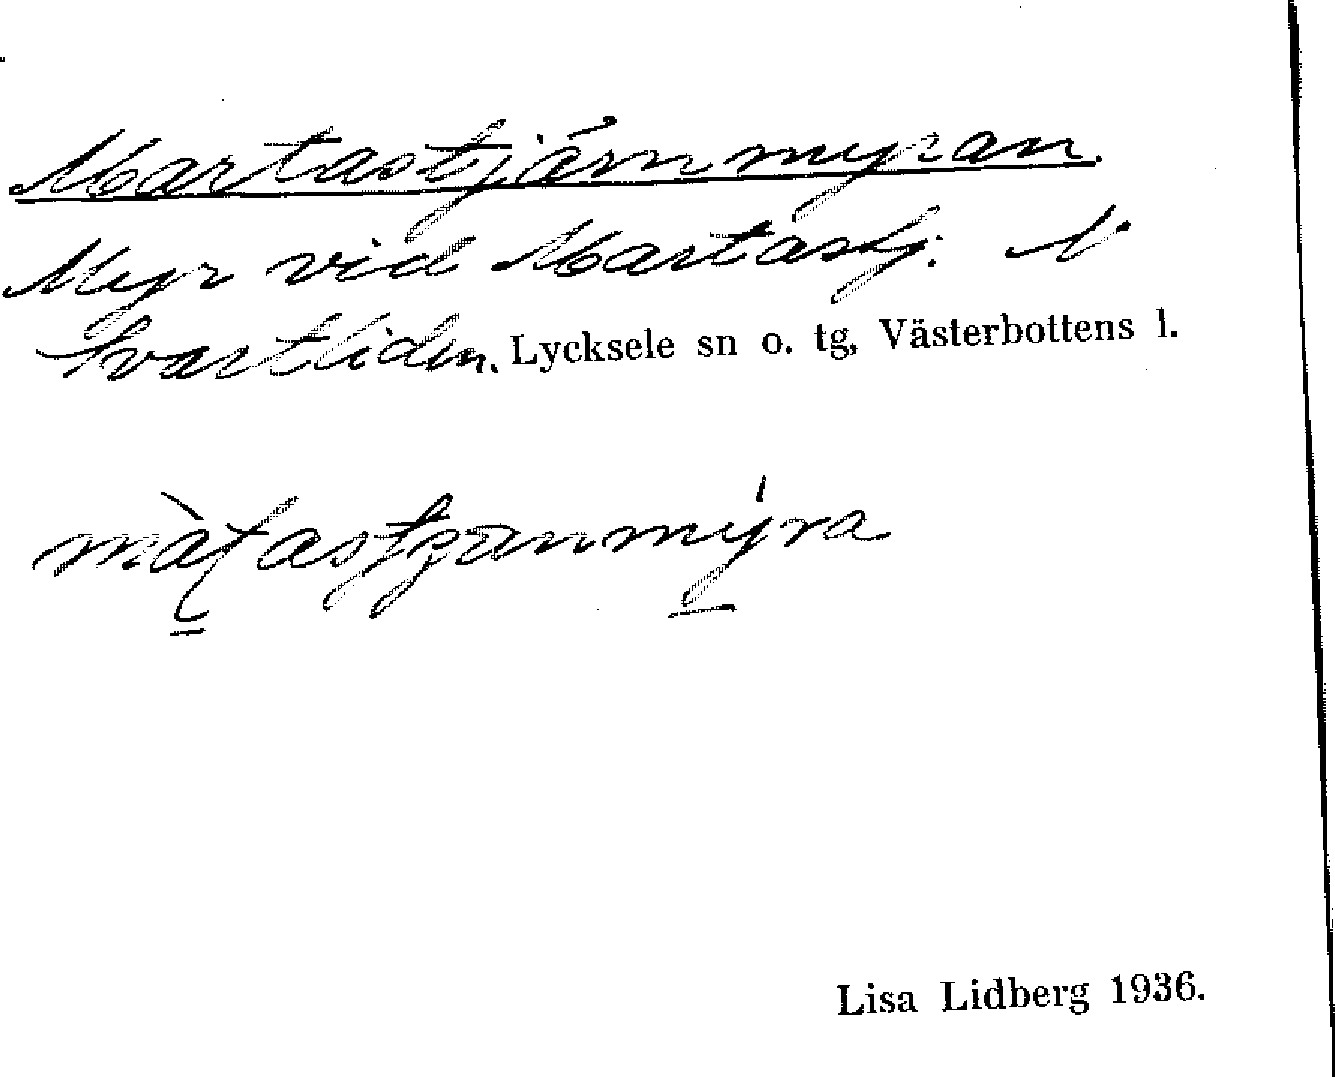 Martastjärnmyran.
Myr vid Martastj. N
Svartliden. Lycksele sn o. tg, Västerbottens l.
Lisa Lidberg 1936.